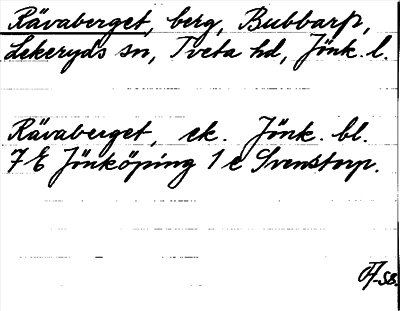 Rävaberget, berg, Bubbarp,
Lekeryds sn, Tveta hd, Jönk. l.
Rävaberget, ek. Jönk. bl.
7 E Jönköping 1 e Svenstorp.